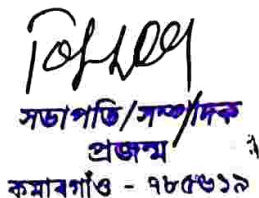 সভাপতি/সম্পাদক
প্ৰজন্ম
কমাৰগাঁও - ৭৮৫৬১৯